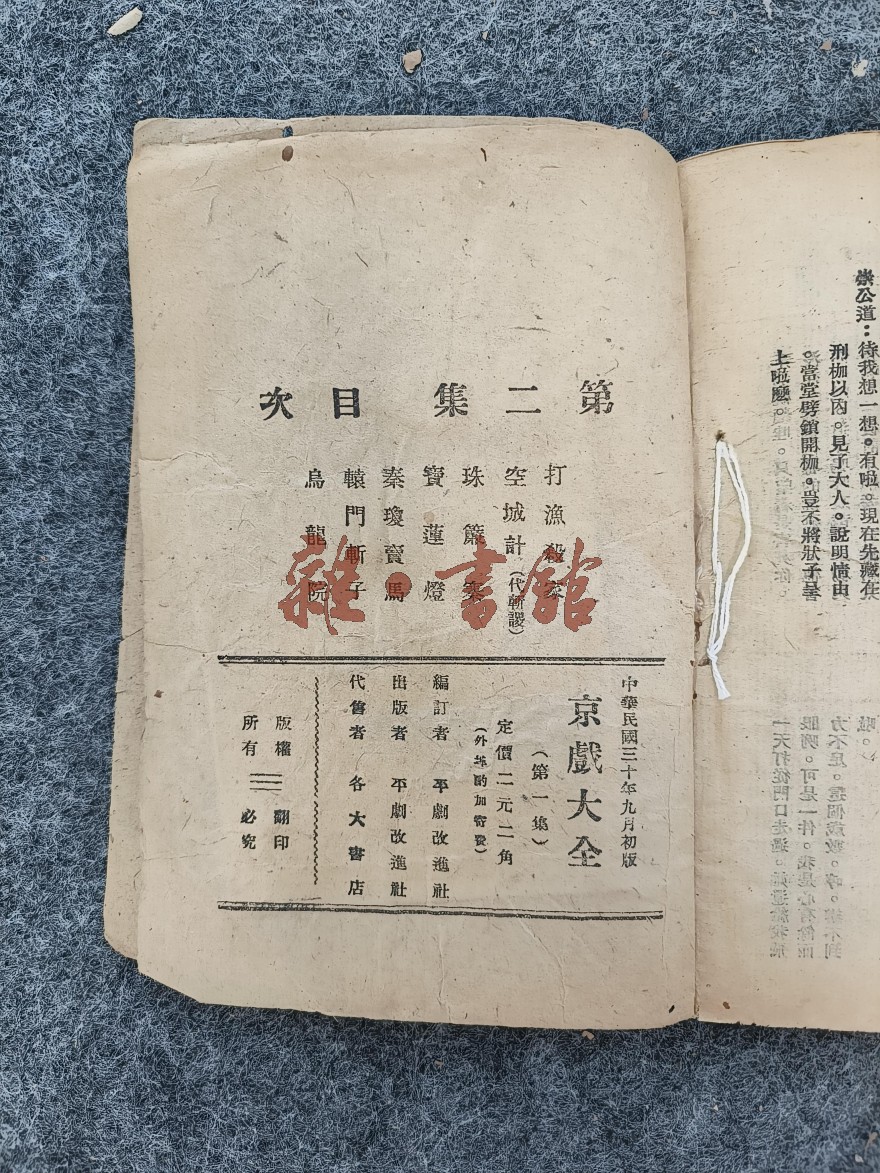 崇公道:待我想一想。有啦。現在先藏在
刑枷以內。見了大人。說明情由
。當堂劈鎖開枷。豈不將狀子呈
上啦麼。
第二集 目次
打漁殺家
空城計(代斬謖)
珠簾寨
寶蓮燈
秦瓊賣馬
轅門斬子
烏龍院
雜·書館
中華民國三十年九月初版
京戲大全
(第一集)
定價二元二角
(外埠酌加寄費)
編訂者 平劇改進社
出版者 平劇改進社
代售者 各大書店
版權 翻印
所有 必究